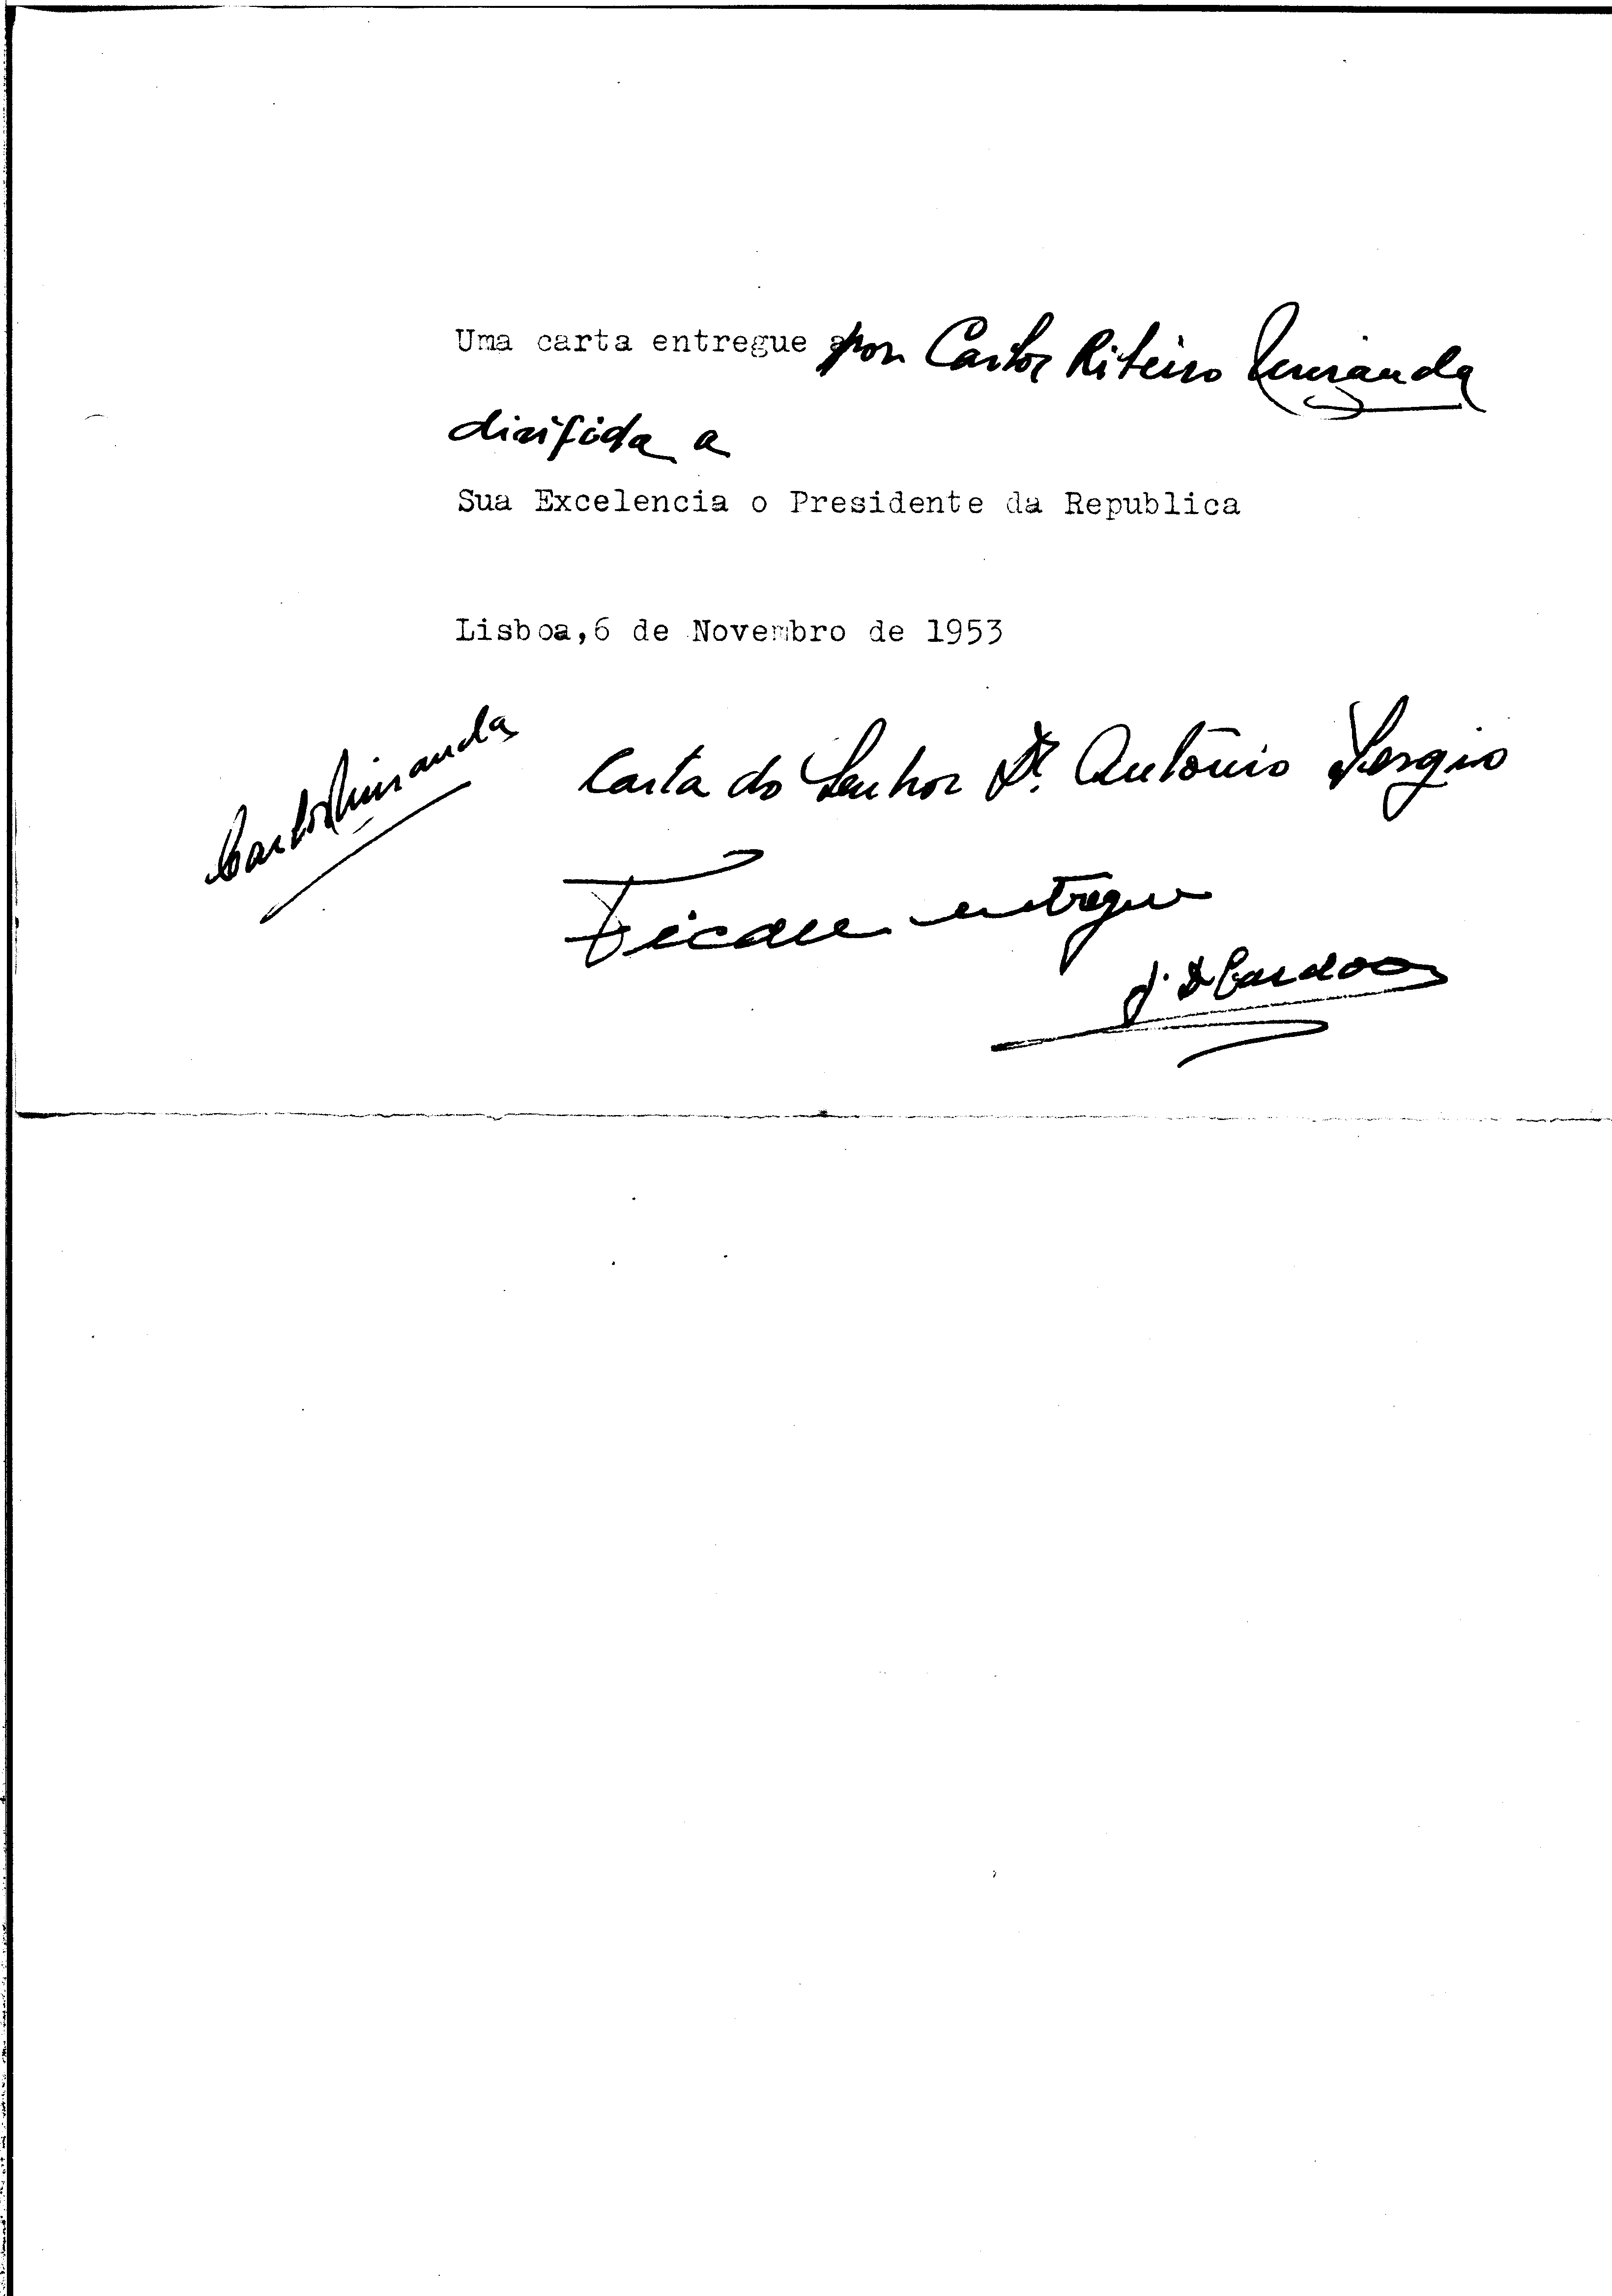 Uma carta entregue por Carlos Ribeiro Miranda
dirigida a
Sua Excelencia o Presidente da Republica
Lisboa,6 de Novembro de 1953
Carlos Miranda
Carta do Senhor Dr. António Sergio
Ficou entregue
J. D Cardoso